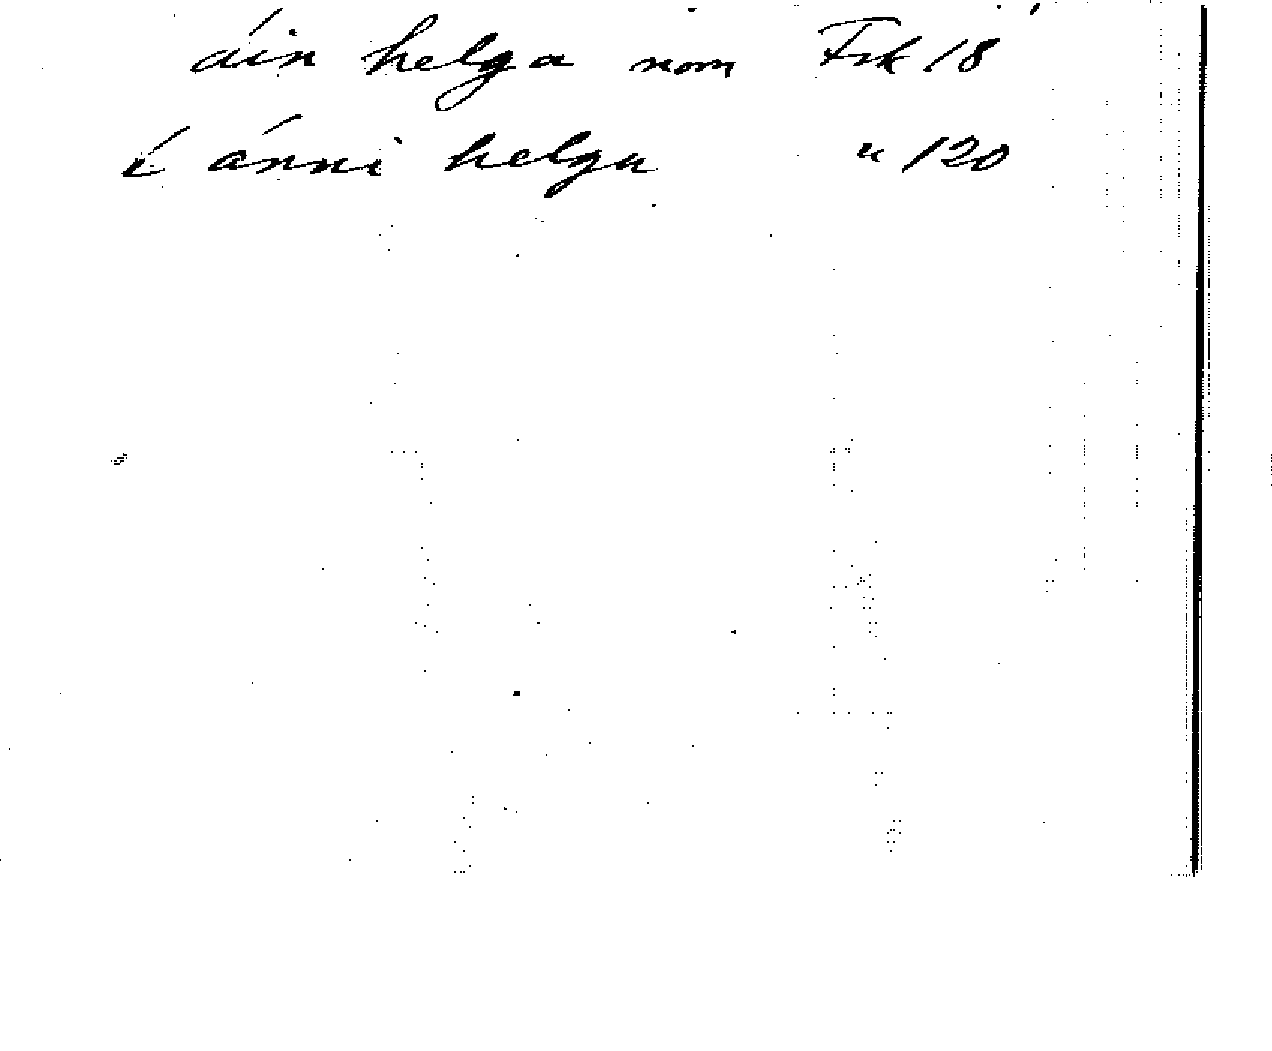 áin helga nom Fsk 18
í ánni helgu " 120